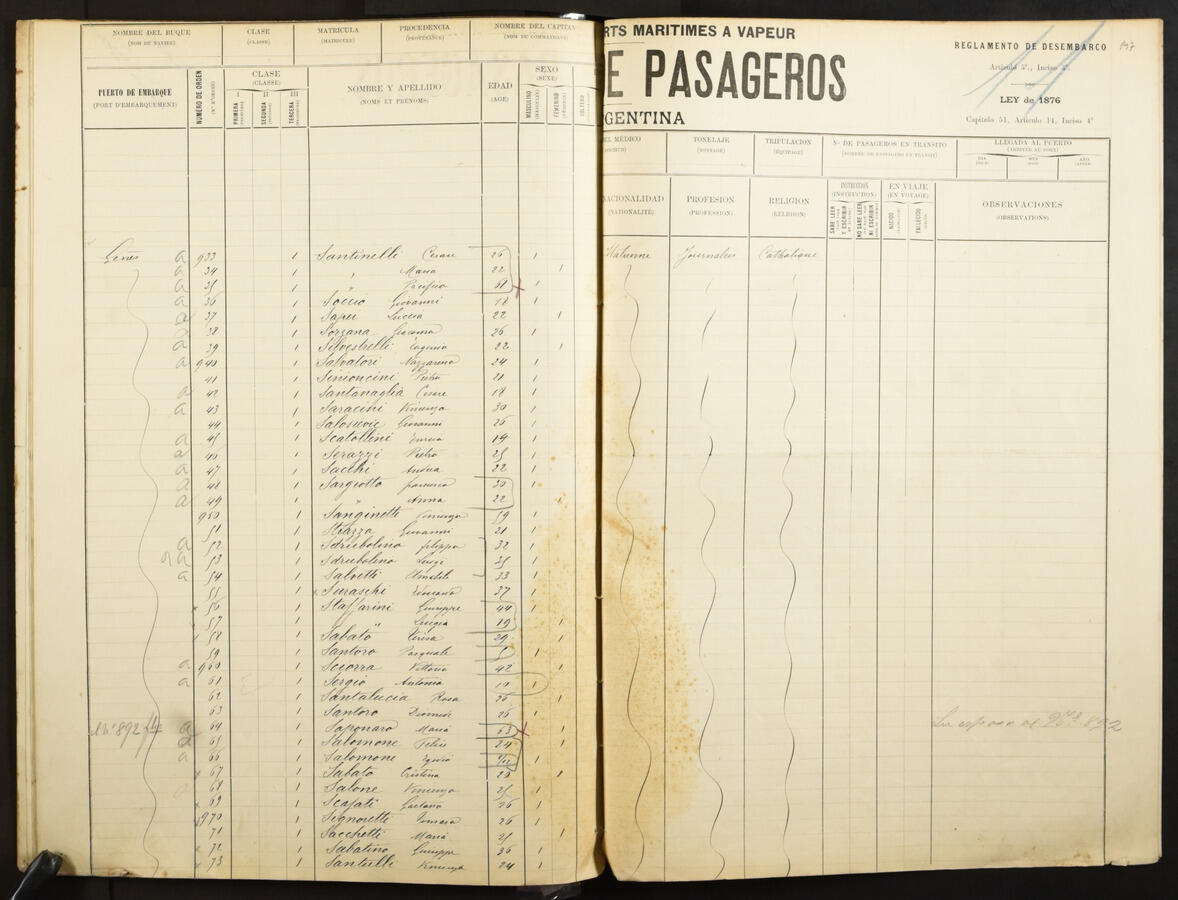 NOMBRE DEL BUQUE
(NOM DU NAVIRE)
CLASE
(CLASSE)
MATRICULA
(MATRICULE)
PROCEDENCIA
NOMBRE DEL CAPITAN
RTS MARITIMES A VAPEUR
E PASAGEROS
GENTINA
REGLAMENTO DE DESEMBARCO
Artículo 5º., Inciso 4º.
LEY de 1876
Capítulo 51, Artículo 14, Inciso 4º
TONELAJE
TRIPULACION
Nº DE PASAGEROS EN TRANSITO
LLEGADA AL PUERTO
DIA
MES
AÑO
PUERTO DE EMBARQUE
(PORT D'EMBARQUEMENT)
NUMERO DE ORDEN
CLASE
(CLASSE)
I
PRIMERA
II
SEGUNDA
III
TERCERA
NOMBRE Y APELLIDO
(NOMS ET PRENOMS)
EDAD
(AGE)
SEXO
(SEXE)
MASCULINO
FEMENINO
SOLTERO
NACIONALIDAD
(NATIONALITÉ)
PROFESION
(PROFESSION)
RELIGION
(RELIGION)
INSTRUCCION
(INSTRUCTION)
SABE LEER Y ESCRIBIR
NO SABE LEER NI ESCRIBIR
EN VIAJE
(EN VOYAGE)
NACIDO
FALLECIDO
OBSERVACIONES
(OBSERVATIONS)
Genes a 933 1 Santinelli Cesare 26 1 Italienne Journalier Catholique
a 34 1 " Maria 22 1
a 35 1 " 61 1
a 36 1 Soccio Giovanni 18 1
a 37 1 Luccia 22 1
a 38 1 Sorzana Giacomo 26 1
a 39 1 Silvestrelli Eugenia 22 1
a 940 1 Salvatori Nazzareno 24 1
41 1 Simoncini Pietro 21 1
a 42 1 Santanaglia Cesare 18 1
a 43 1 Saracini Vincenzo 30 1
44 1 Giovanni 26 1
a 45 1 Scatollini 19 1
a 46 1 Serazzi Pietro 25 1
a 47 1 Sacchi Andrea 22 1
a 48 1 Sargiotto 30 1
a 49 1 " Anna 22 1
950 1 Sanginetti Vincenzo 59 1
51 1 Giovanni 21 1
a 52 1 Sdrubolino Filippo 32 1
a 53 1 Sdrubolino Luigi 35 1
a 54 1 Salvetti 33 1
55 1 Suraschi 37 1
56 1 Staffarini Giuseppe 44 1
57 1 " Luigia 19 1
58 1 Sabato Teresa 29 1
59 1 Santoro Pasquale 1
a 960 1 Sciorra Vittoria 42 1
a 61 1 Sergio Antonio 10 1
62 1 Santalucia Rosa 26 1
63 1 Santoro 26 1
Nº 892 a 64 1 Saponaro Maria 63 1 892
a 65 1 Salomone Felice 24 1
a 66 1 Salomone 1
67 1 Sabato Cristina 26 1
68 1 Salone Vincenzo 25 1
69 1 Scafati Gaetano 26 1
970 1 Signoretti 26 1
71 1 Sacchetti Maria 25 1
72 1 Sabatino Giuseppe 36 1
73 1 Santulli Vincenzo 24 1